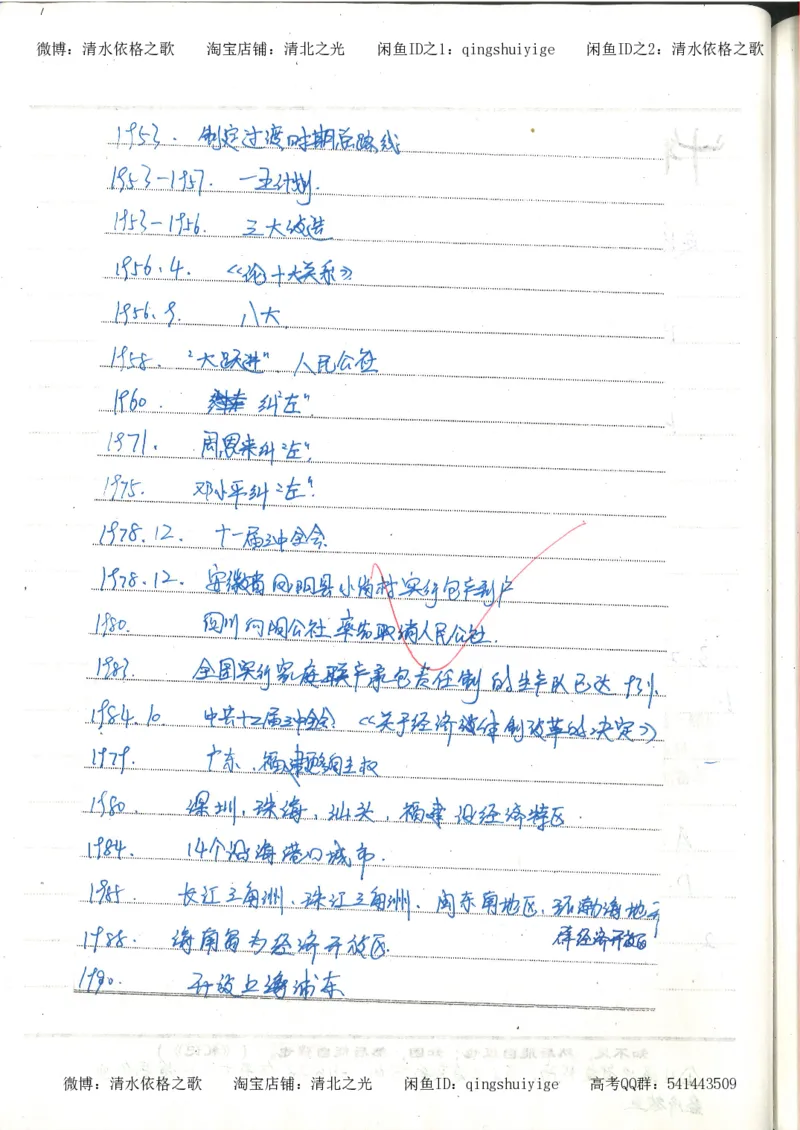 微博：清水依格之歌 淘宝店铺：清北之光 闲鱼ID之1：qingshuiyige 闲鱼ID之2：清水依格之歌
1953. 制定过渡时期总路线
1953-1957. 一五计划.
1953-1956. 三大改造
1956.4. 《论十大关系》
1956.9. 八大.
1958. "大跃进"、人民公社
1960. 纠"左".
1971. 周恩来纠"左".
1975. 邓小平纠"左".
1978.12. 十一届三中全会
1978.12. 安徽省凤阳县小岗村实行包产到户
1980. 四川向阳公社率先取消人民公社.
1983. 全国实行家庭联产承包责任制的生产队已达93%.
1984.10. 中共十二届三中全会《关于经济体制改革的决定》
1979. 广东、福建 自主权
1980. 深圳、珠海、汕头、福建设经济特区.
1984. 14个沿海港口城市.
1985. 长江三角洲、珠江三角洲、闽东南地区、环渤海地
经济开放区
1988. 海南省为经济开放区.
1990. 开放上海浦东
微博：清水依格之歌 淘宝店铺：清北之光 闲鱼ID：qingshuiyige 高考QQ群：541443509